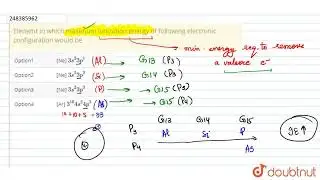 248385962
Element in which maximum ionization energy of following electronic
configuration would be
min. energy req. to remove
a valence e⁻
Option1 [Ne] 3s²3p¹ (Al) → G13 (P3)
Option2 [Ne] 3s²3p² (Si) → G14 (P3)
Option3 [Ne] 3s²3p³ (P) → G15 (P3)
Option4 [Ar] 3d¹⁰4s²4p³ (As) → G15 (P4)
18+10+5 = 33
G13 G14 G15
P3 Al Si P
IE↑
P4 As
doubtnut